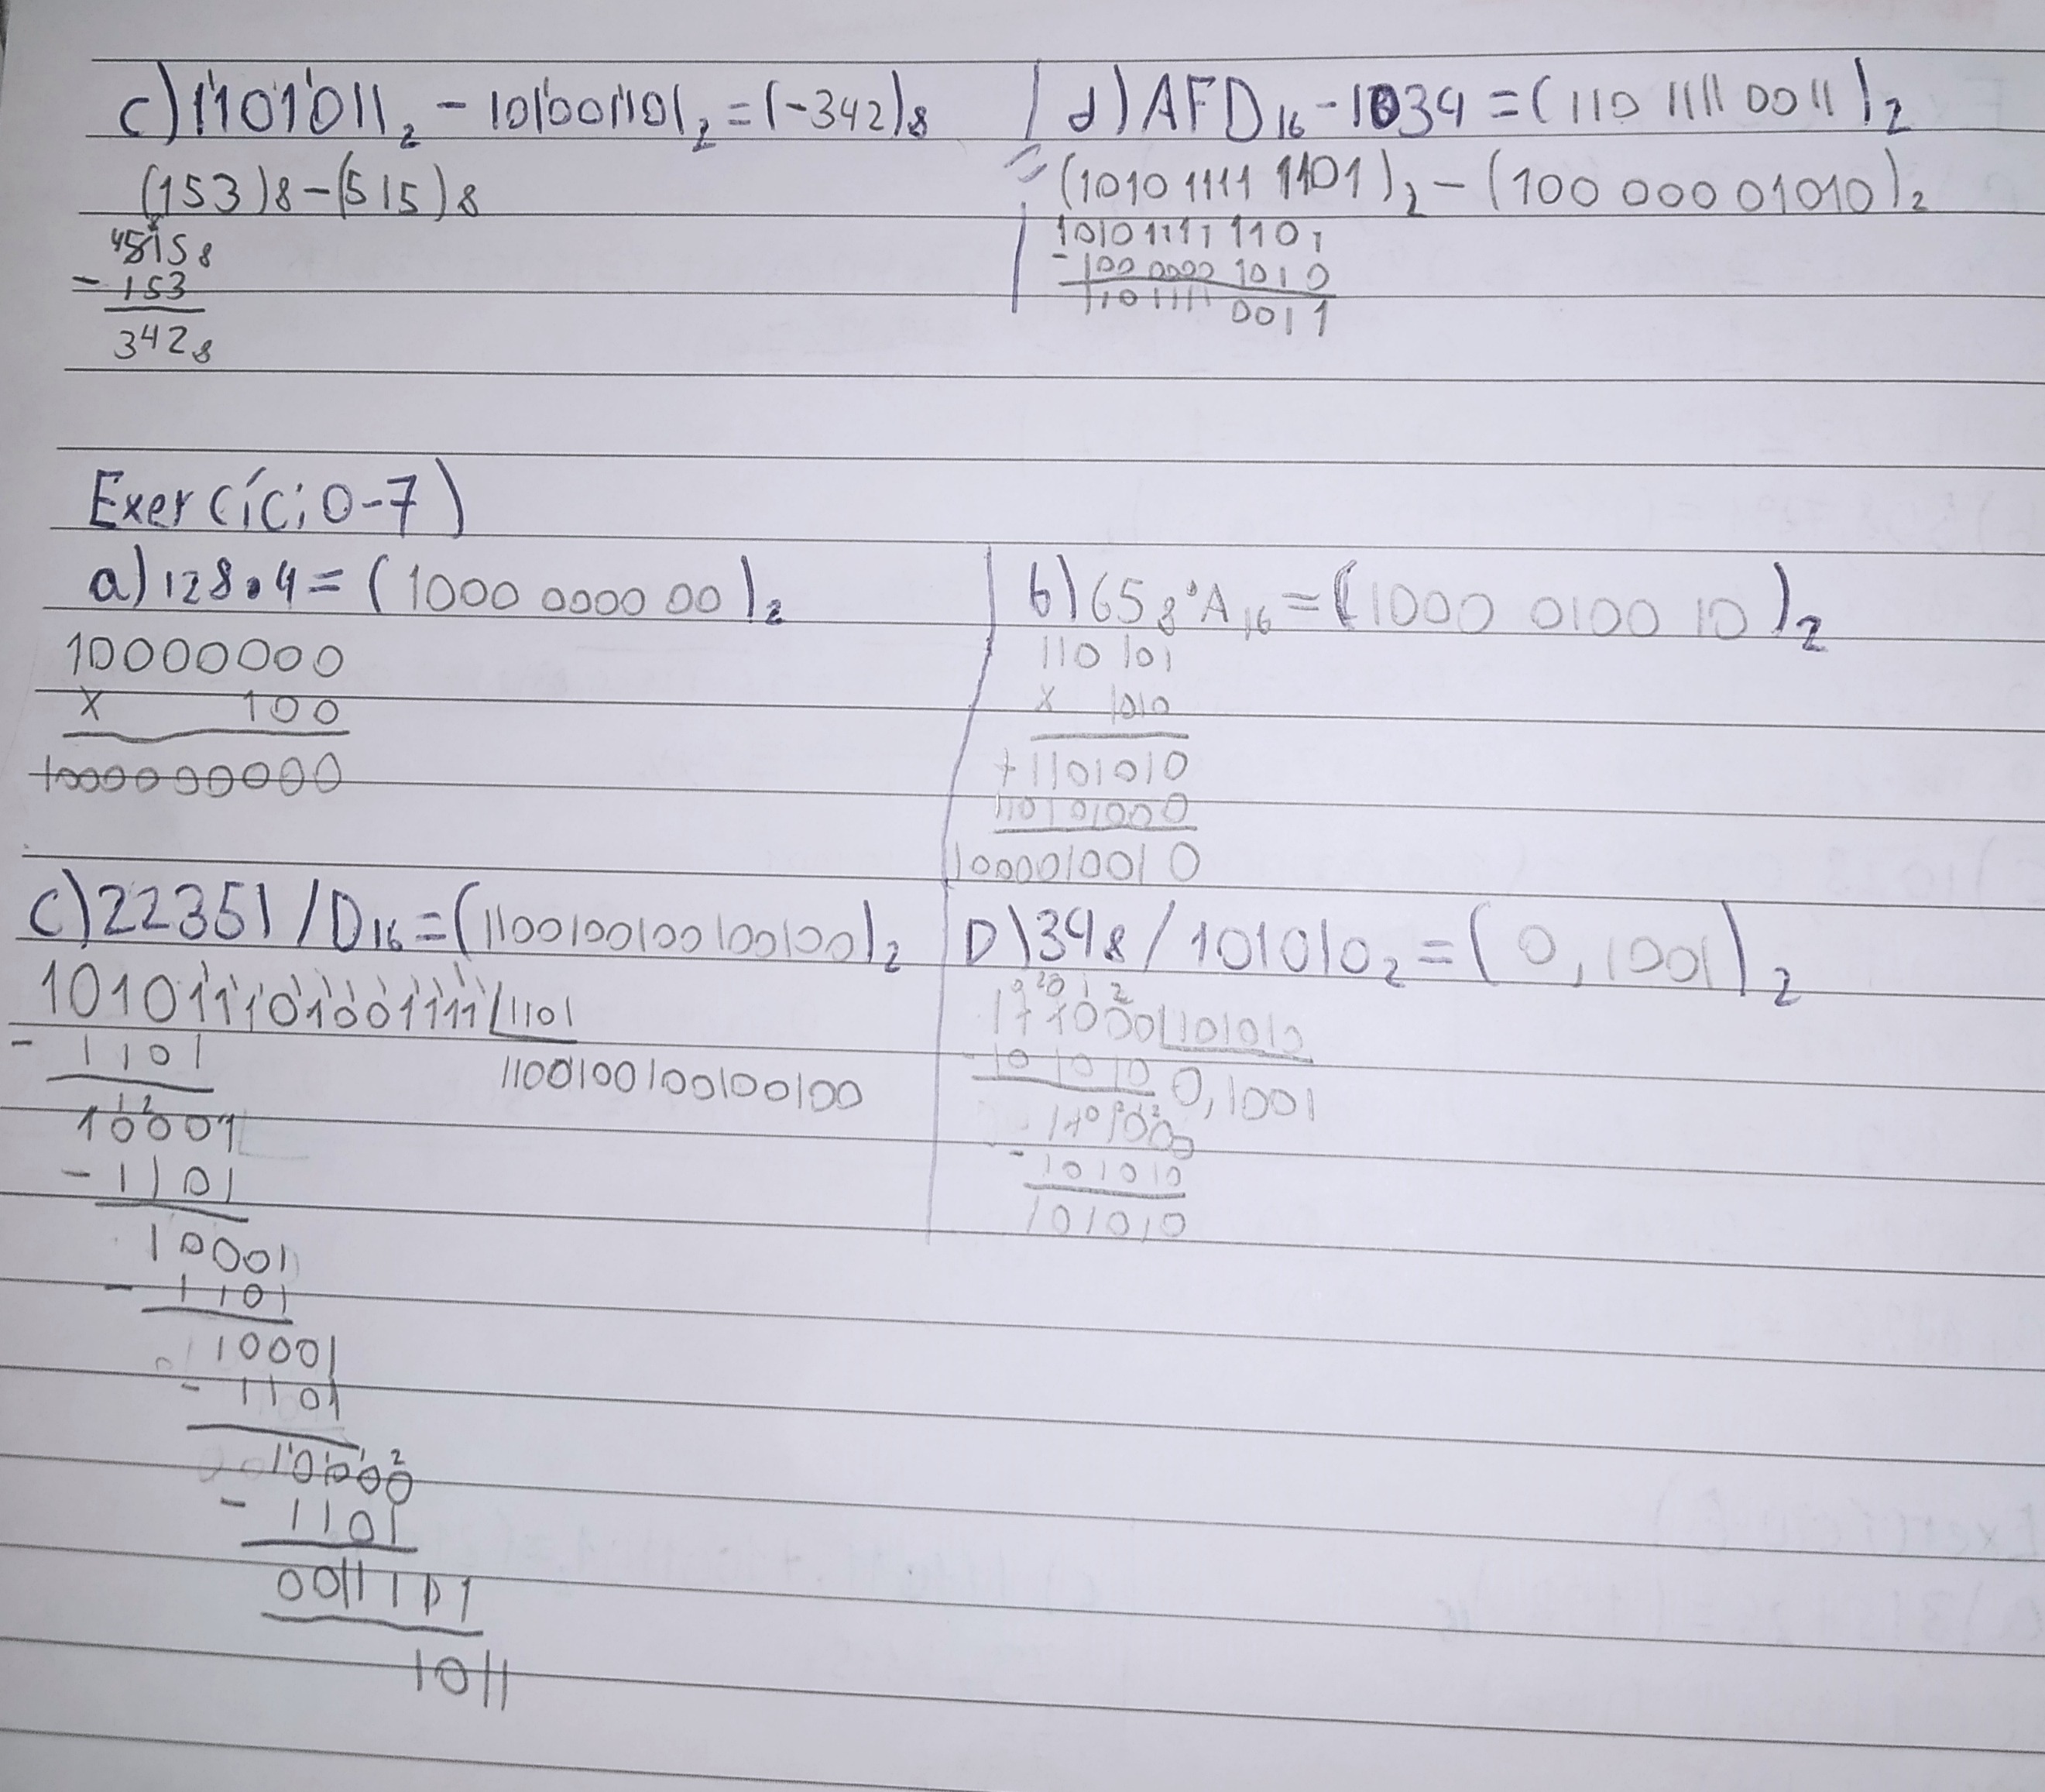 c) 1101011₂ - 101001101₂ = (-342)₈
(153)8 - (515)8
4515₈
- 153
342₈
d) AFD₁₆ - 1034 = (110 1111 0011)₂
= (1010 1111 1101)₂ - (100 000 01010)₂
1010 1111 1101
- 100 0000 1010
110 1111 0011
Exercício-7)
a) 128.4 = (1000 0000 00)₂
10000000
x 100
1000000000
b) 65₈.A₁₆ = (1000 0100 10)₂
110 101
x 1010
+ 1101010
110101000
1000010010
c) 22351 / D₁₆ = (110010010010 0100)₂
101011101001111 1101
- 1101
110010010010 0100
10001
- 1101
10001
- 1101
10001
- 1101
10000
- 1101
0011101
1011
D) 348 / 101010₂ = (0,1001)₂
101010
- 101010 0,1001
- 101010
101010